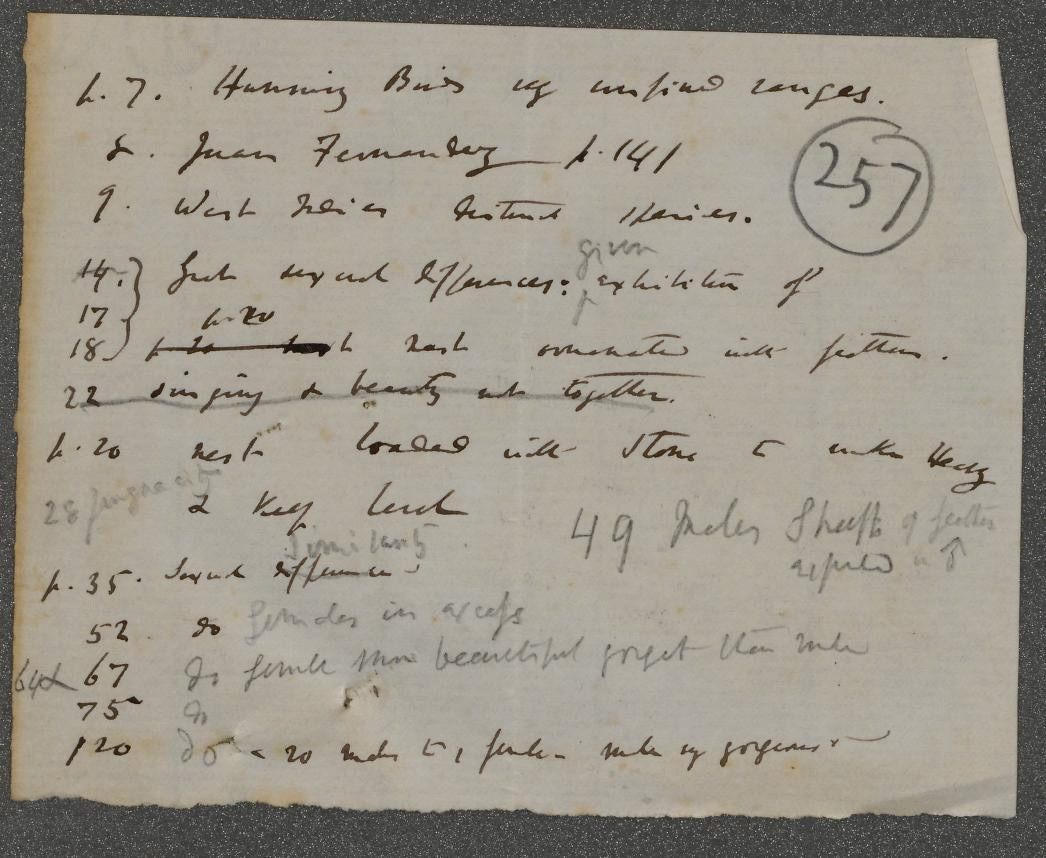 p. 7. Humming Birds confined ranges.
8. Juan Fernandez p. 141
257
9. West Indies distinct species.
given
14. Great sexual differences: exhibition of
17 p. 20
18 p 20 nest nest ornamented with feathers.
22 singing & beauty not together.
p. 20 nest loaded with stone to make steady
28 pugnacity & keep level
49 Males Shaft of feather
similarity
expanded in ♂
p. 35. Sexual differences
52 do females in excess
64 & 67 do female more beautiful gorget than male
75 do
120 do < 20 males to 1 female male gorgeous